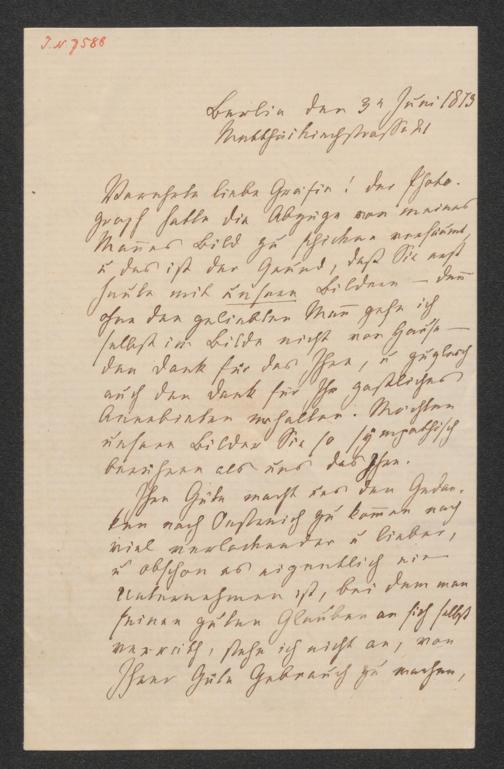 J.N 7588
Berlin den 3t Juni 1873
Matthäikirchstrasse 21
Verehrte liebe Gräfin! der Photo-
graph hatte die Abzüge von meines
Mannes Bild zu schicken versäumt,
u das ist der Grund, daß Sie erst
heute mit unseren Bildern — denn
ohne den geliebten Mann gehe ich
selbst im Bilde nicht von Hause —
den Dank für das Ihre, u zugleich
auch den Dank für Ihr gastliches
Anerbieten erhalten. Möchten
unsere Bilder Sie so sympathisch
berühren als uns das Ihre.
Ihre Güte macht uns den Gedan-
ken nach Oestreich zu kommen noch
viel verlockender u lieber,
u obschon es eigentlich ein
Unternehmen ist, bei dem man
seinen guten Glauben an sich selbst
verräth, stehe ich nicht an, von
Ihrer Güte Gebrauch zu machen,